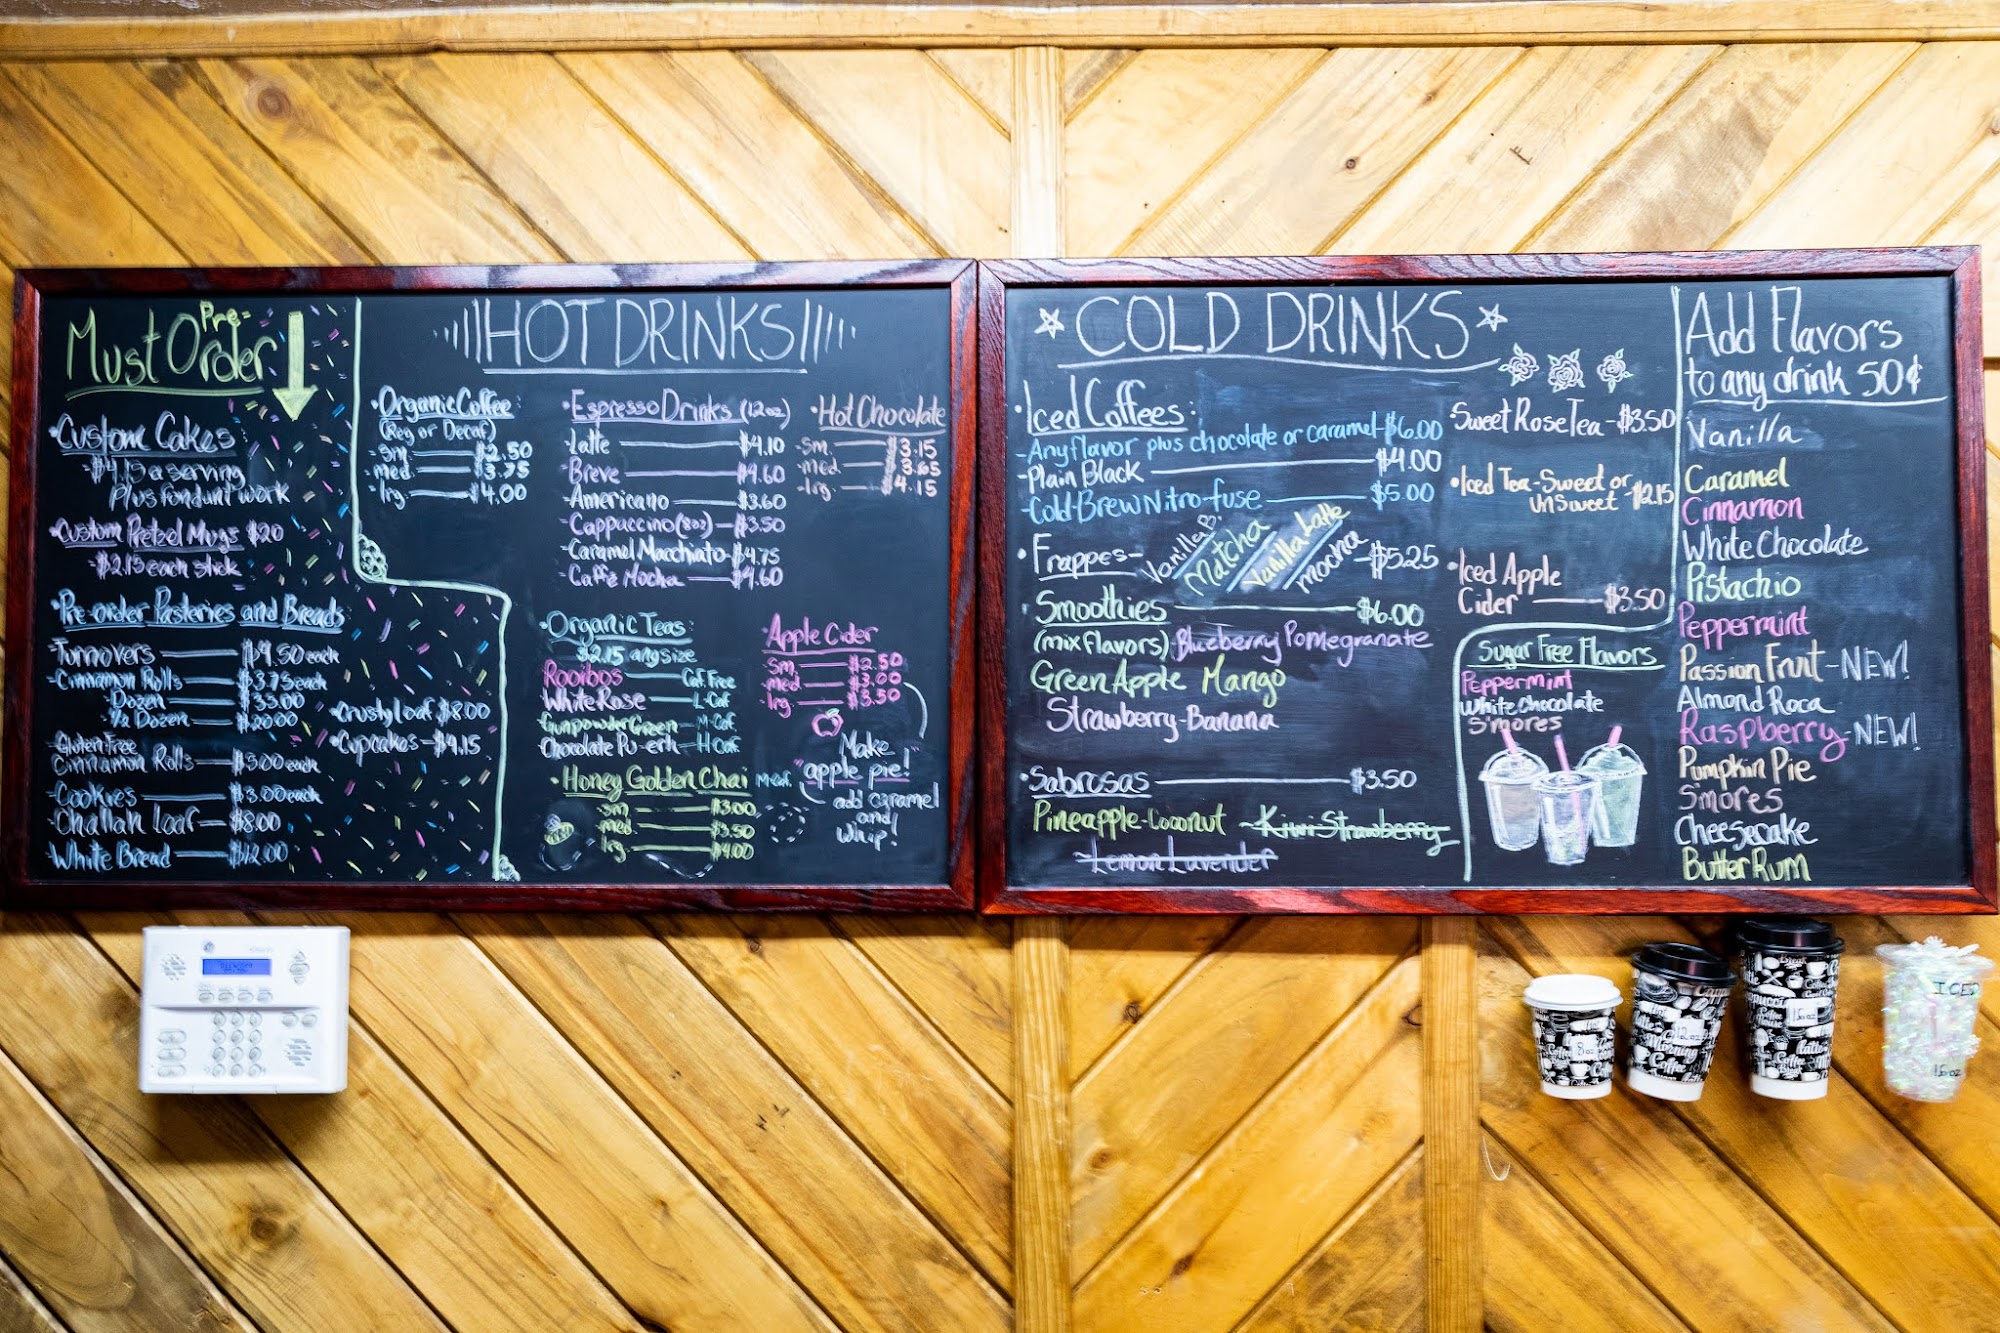 Must Pre-
Order
•Custom Cakes
-$4.15 a serving
Plus fondant work
•Custom Pretzel Mugs $20
-$2.15 each stick
•Pre-order Pasteries and Breads
-Turnovers $4.50 each
-Cinnamon Rolls $3.75 each
Dozen $33.00
-½ Dozen $20.00
-Gluten Free
Cinnamon Rolls $5.00 each
-Cookies $3.00 each
-Challah Loaf $8.00
-White Bread $12.00
•Crusty loaf $8.00
•Cupcakes $4.15
HOT DRINKS
•Organic Coffee:
(Reg or Decaf)
-sm $2.50
-med $3.75
-lrg $4.00
•Espresso Drinks (12oz)
-Latte $4.10
-Breve $4.60
-Americano $3.60
-Cappaccino (8oz) $3.50
-Caramel Macchiato $4.75
-Caffe Mocha $4.60
•Hot Chocolate
-Sm. $3.15
-med $3.65
-lrg $4.15
•Organic Teas:
$2.15 any size
Rooibos Caf. Free
White Rose L-Caf
Gunpowder Green M-Caf
Chocolate Pu-erh H Caf.
•Honey Golden Chai M-Caf.
sm $3.00
med $3.50
lrg $4.00
•Apple Cider
-sm $2.50
-med $3.00
-lrg $3.50
Make
"apple pie!"
add caramel
and
whip!
COLD DRINKS
•Iced Coffees:
-Any flavor plus chocolate or caramel-$6.00
-Plain Black $4.00
-Cold-Brew Nitro-fuse $5.00
•Frappes- Vanilla Matcha Vanilla Latte mocha -$5.25
Smoothies $6.00
(mix flavors) Blueberry Pomegranate
Green Apple Mango
Strawberry-Banana
•Sabrosas $3.50
Pineapple-Coconut -Kiwi Strawberry
-Lemon Lavender
•Sweet Rose Tea-$3.50
•Iced Tea-Sweet or
UnSweet -$2.15
•Iced Apple
Cider $3.50
Sugar Free Flavors
Peppermint
White Chocolate
S'mores
Add Flavors
to any drink 50¢
Vanilla
Caramel
Cinnamon
White Chocolate
Pistachio
Peppermint
Passion Fruit-NEW!
Almond Roca
Raspberry-NEW!
Pumpkin Pie
S'mores
Cheesecake
Butter Rum
8oz
12oz
16oz
ICED
16oz